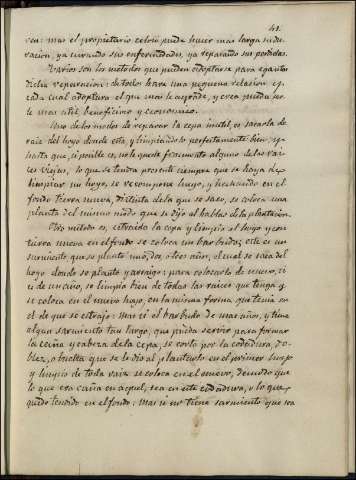 41.
ven: mas el propietario zeloso puede hacer mas larga su du-
racion, ya curando sus enfermedades, ya reparando sus perdidas.
Varios son los metodos que pueden adoptarse para egecutar
dicha reparacion: de todos hare una pequeña relacion, y
cada cual adoptara el que mas le agrade, y crea pueda ser-
le mas util, beneficioso y economico.
Uno de los modos de reparar la cepa inutil, es sacarla de
raiz del hoyo donde esta, y limpiandolo perfectamente bien, y
hasta que, si posible es, no le quede fracmento alguno de las rai-
ces viejas, lo que se tendra presente siempre que se haya de
limpiar un hoyo, se recompone luego, y hechando en el
fondo tierra nueva, distinta de la que se saco, se coloca una
planta del mismo modo que se dijo al hablar de la plantacion.
Otro metodo es, estraida la cepa y limpio el hoyo y con
tierra nueva en el fondo se coloca un barbudo; este es un
sarmiento que se planto uno, dos, o tres años, el cual se saca del
hoyo donde se planto y arraigo: para colocarlo de nuevo, si
es de un año, se limpia bien de todas las raices que tenga y
se coloca en el nuevo hoyo, en la misma forma que tenia en
el de que se estrajo: mas si el barbudo de mas años, y tiene
algun sarmiento tan largo, que pueda servir para formar
la caña y cabeza de la cepa, se corta por la codadura, do-
blez, o buelta que se le dio al plantarlo en el primer hoyo
y limpio de toda raiz se coloca en el nuevo, de modo que
lo que era caña en aquel, sea en este codadura, o lo que
quede tendido en el fondo: Mas si no tiene sarmiento que sea